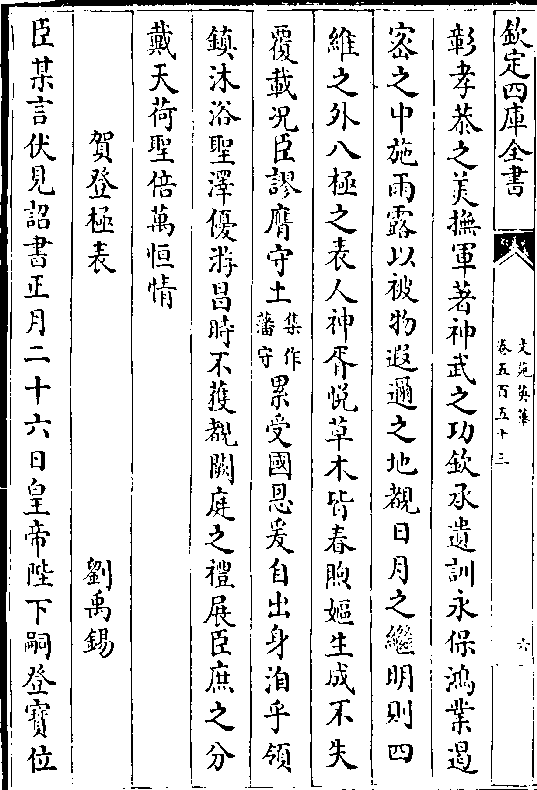 欽定四庫全書
文苑英華
卷五百五十三
六
彰孝恭之美撫軍著神武之功欽承遺訓永保鴻業遏
密之中施雨露以被物遐邇之地覩日月之繼明則四
維之外八極之表人神胥悅草木皆春煦嫗生成不失
覆載况臣謬膺守土集作藩守累受國恩爰自出身洎乎領
鎮沐浴聖澤優游昌時不獲覩闕庭之禮展臣庶之分
戴天荷聖倍萬恒情
賀登極表 劉禹錫
臣某言伏見詔書正月二十六日皇帝陛下嗣登寶位